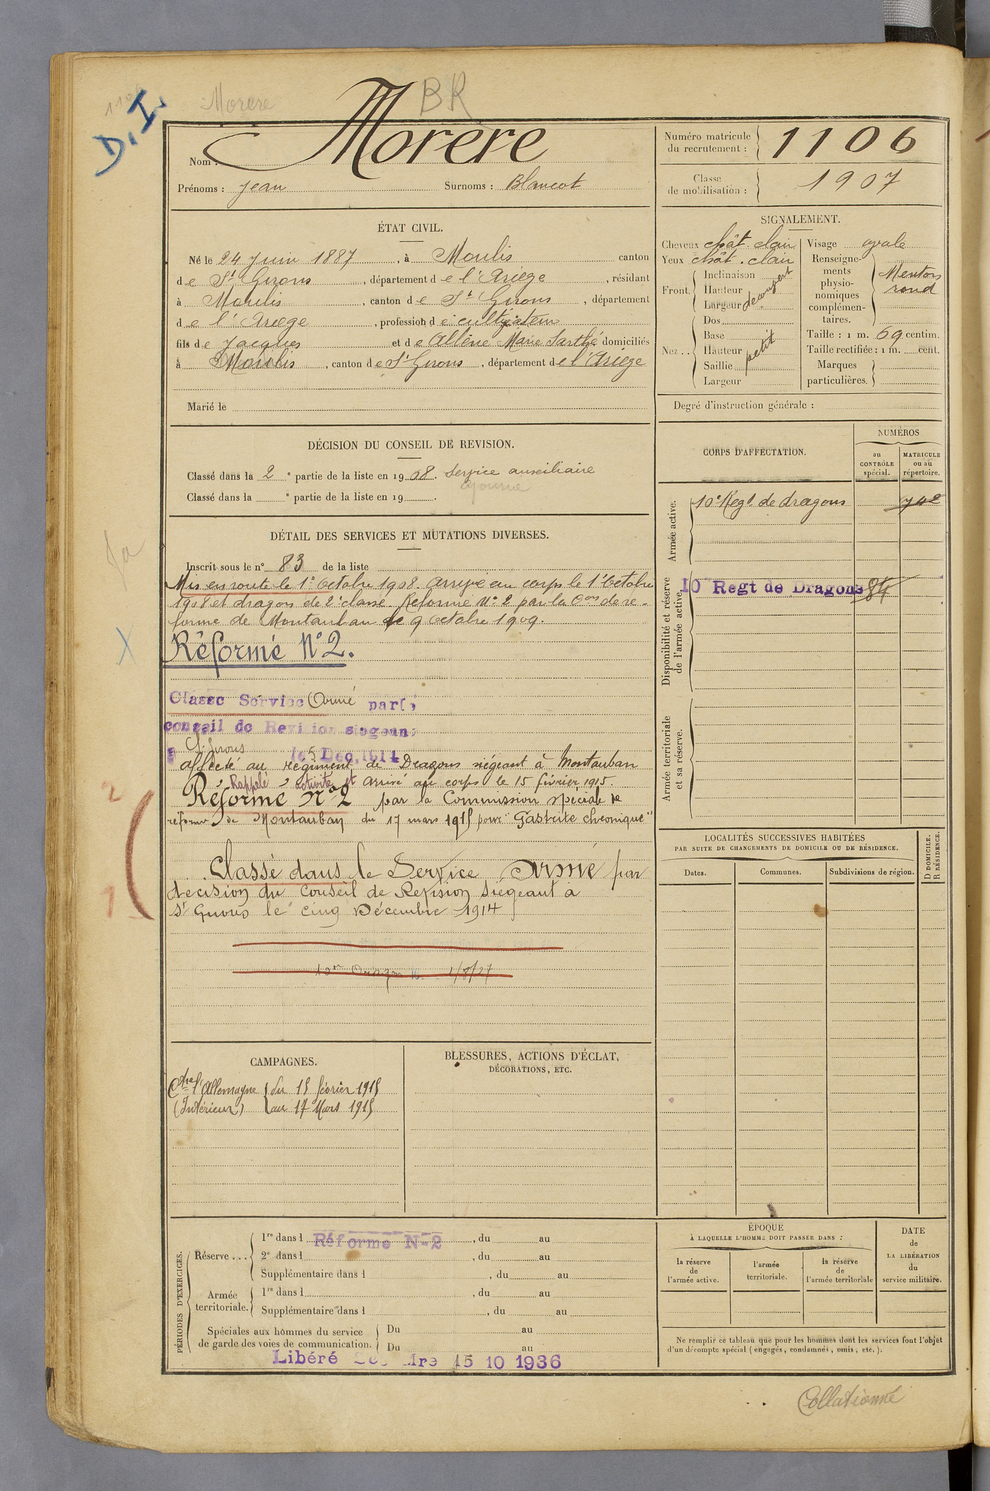 Morere
BR
D.I.
Nom : Morere
Prénoms : Jean Surnoms : Blancot
Numéro matricule du recrutement : 1106
Classe de mobilisation : 1907
ÉTAT CIVIL.
Né le 24 Juin 1887, à Moulis canton
de St Girons, département de l'Ariège, résidant
à Moulis, canton de St Girons, département
de l'Ariège, profession de cultivateur
fils de Jacques et de Allène Marie domiciliés
à Moulis, canton de St Girons, département de l'Ariège
Marié le
SIGNALEMENT.
Cheveux chât. clair
Yeux chât. clair
Front. Inclinaison
Hauteur
Largeur
Nez... Dos
Base
Hauteur petit
Saillie
Largeur
Visage ovale
Renseignements physionomiques complémentaires. Menton rond
Taille : 1 m. 69 centim.
Taille rectifiée : 1 m. cent.
Marques particulières.
Degré d'instruction générale :
DÉCISION DU CONSEIL DE REVISION.
Classé dans la 2e partie de la liste en 1908. Service auxiliaire
Classé dans la e partie de la liste en 19 .
DÉTAIL DES SERVICES ET MUTATIONS DIVERSES.
Inscrit sous le n° 83 de la liste
Mis en route le 1er Octobre 1908. Arrivé au corps le 1er Octobre
1908 et dragon de 2e classe. Réformé N° 2 par la Con de ré-
forme de Montauban le 9 Octobre 1909.
Réformé N° 2.
Classé Service Armé par le
conseil de Revision siégeant
à St Girons le 5 Dec. 1914
affecté au régiment de Dragons siégeant à Montauban
Rappelé à l'activité et arrivé au corps le 15 février 1915.
Réformé N° 2 par la Commission spéciale de
réforme de Montauban du 17 mars 1915 pour "Gastrite chronique"
Classé dans le Service Armé par
décision du Conseil de Revision siégeant à
St Girons le cinq Décembre 1914
1/8/27
CORPS D'AFFECTATION.
NUMÉROS
au CONTRÔLE spécial.
MATRICULE ou au répertoire.
Armée active.
10e Régt de dragons
Disponibilité et réserve de l'armée active.
10 Regt de Dragons
Armée territoriale et sa réserve.
LOCALITÉS SUCCESSIVES HABITÉES
PAR SUITE DE CHANGEMENTS DE DOMICILE OU DE RÉSIDENCE.
Dates. Communes. Subdivisions de région.
D DOMICILE. R RÉSIDENCE.
CAMPAGNES.
Ctre l'Allemagne du 15 février 1915
(Intérieur) au 17 Mars 1915
BLESSURES, ACTIONS D'ÉCLAT,
DÉCORATIONS, ETC.
PÉRIODES D'EXERCICES.
Réserve ... 1re dans l Réformé N-2, du au
2e dans l , du au
Supplémentaire dans l , du au
Armée territoriale. 1re dans l , du au
Supplémentaire dans l , du au
Spéciales aux hommes du service de garde des voies de communication. Du au
Du au
Libéré 15 10 1936
ÉPOQUE
À LAQUELLE L'HOMME DOIT PASSER DANS :
la réserve de l'armée active.
l'armée territoriale.
la réserve de l'armée territoriale
DATE de LA LIBÉRATION du service militaire.
Ne remplir ce tableau que pour les hommes dont les services font l'objet
d'un décompte spécial (engagés, condamnés, omis, etc.).
Collationné